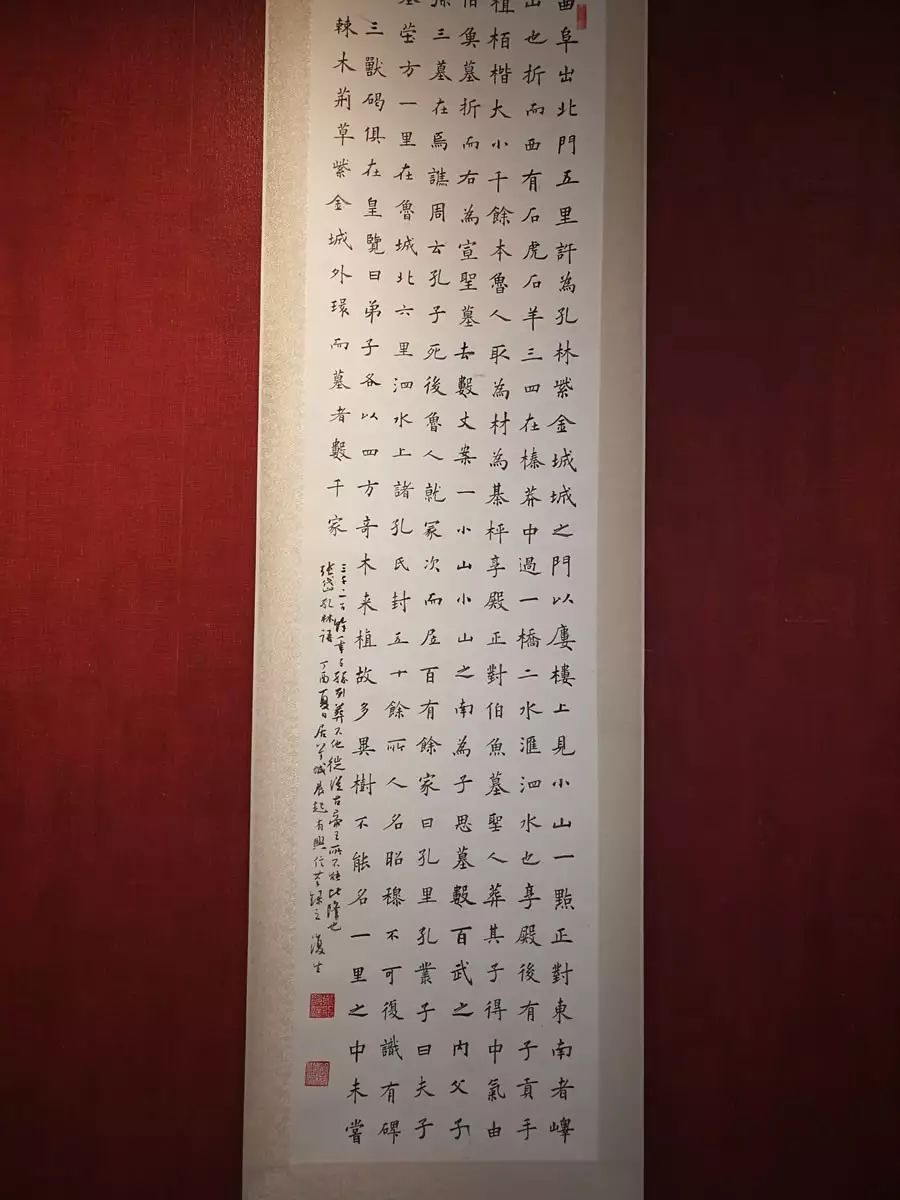 曲阜出北門五里許為孔林紫金城城之門以廔樓上見小山一點正對東南者嶧
山也折而西有石虎石羊三四在榛莽中過一橋二水滙泗水也享殿後有子貢手
植栢楷大小千餘本魯人取為材為棊枰享殿正對伯魚墓聖人葬其子得中氣由
伯魚墓折而右為宣聖墓去數丈案一小山小山之南為子思墓數百武之內父子
孫三墓在焉譙周云孔子死後魯人就冢次而居百有餘家曰孔里孔叢子曰夫子
墓塋方一里在魯城北六里泗水上諸孔氏封五十餘所人名昭穆不可復識有碑
三獸碣俱在皇覽曰弟子各以四方奇木来植故多異樹不能名一里之中未嘗
棘木荊草紫金城外環而墓者數千家
三千二百餘年子孫列葬不他徙從古帝王所不能比隆也
張岱孔林語 丁酉夏日居城晨起有興信筆錄之 復生